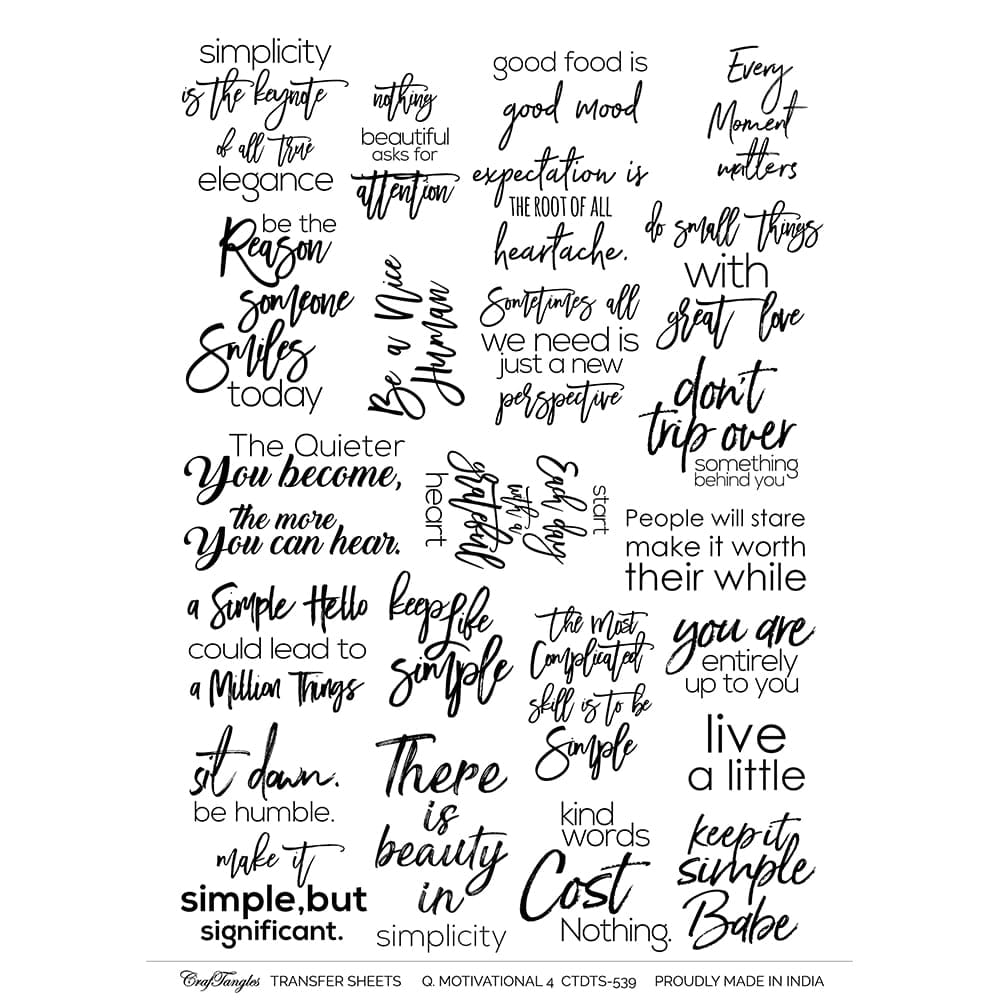 simplicity
is the keynote
of all true
elegance
nothing
beautiful
asks for
attention
good food is
good mood
Every
Moment
matters
expectation is
THE ROOT OF ALL
heartache.
do small things
with
great love
be the
Reason
someone
Smiles
today
Be a Nice
Human
Sometimes all
we need is
just a new
perspective
don't
trip over
something
behind you
The Quieter
You become,
the more
You can hear.
start
Each day
with a
grateful
heart
People will stare
make it worth
their while
a Simple Hello
could lead to
a Million Things
keep Life
simple
The Most
Complicated
skill is to be
Simple
you are
entirely
up to you
live
a little
sit down.
be humble.
There
is
beauty
in
simplicity
kind
words
Cost
Nothing.
keep it
simple
Babe
make it
simple,but
significant.
CrafTangles TRANSFER SHEETS Q. MOTIVATIONAL 4 CTDTS-539 PROUDLY MADE IN INDIA